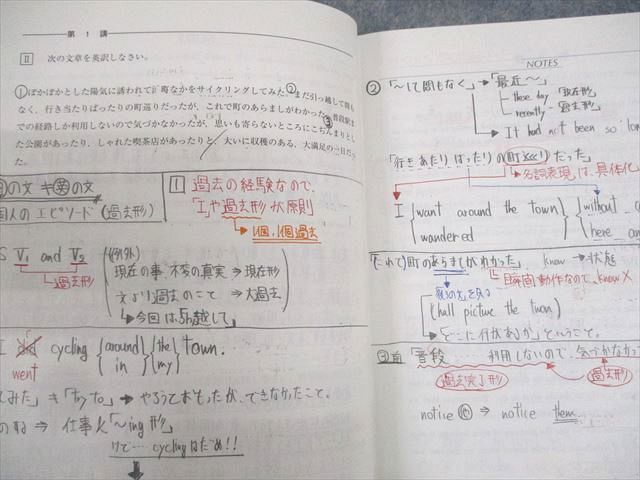 第 1 講
II 次の文章を英訳しなさい。
①ぽかぽかとした陽気に誘われて町なかをサイクリングしてみた。②まだ引っ越して間も
なく、行き当たりばったりの町巡りだったが、これで町のあらましがわかった。③普段駅ま
での経路しか利用しないので気づかなかったが、思いも寄らないところにこぢんまりとし
た公園があったり、しゃれた喫茶店があったりと、大いに収穫のある、大満足の一日だっ
の文 キ の文
人のエピソード(過去形)
1 過去の経験なので、
「I」や過去形が原則
→1個,1個過去
S V1 and V2
過去形
(例外)
現在の事・不変の真実 ⇒ 現在形
文より過去のこと ⇒ 大過去
↳今回は「引越して」
I did cycling {around in} {the my} town.
went
てみた」キ「try to」→ やろうとおもったが、できなかったこと。
⇒ 「〜ing形」
cyclingはだめ!!
NOTES
② 「〜して間もなく」→「最近〜」
these day - 現在形
recently - 過去形
It had not been so long
「行きあたりばったりの町巡りだった」
↳名詞表現は、具体化
I {want around the town wandered} {without a here an
(これで)町のあらましがわかった」 know → 状態
瞬間動作なのでknow ×
(hall picture the twon)
「どこに何があるか」ということ。
③前「普段……利用しないので、気づかなかっ
過去完了形 過去形
notice ⇒ notice them